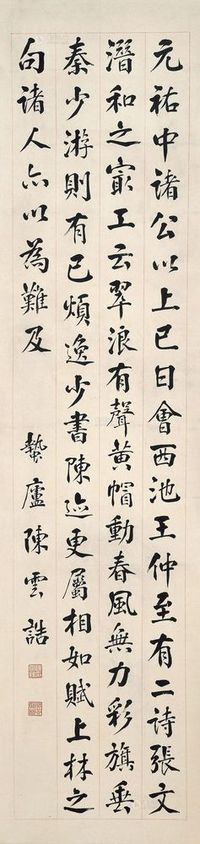 元祐中諸公以上巳日會西池王仲至有二詩張文
潛和之寂工云翠浪有聲黃帽動春風無力彩旗垂
秦少游則有已煩逸少書陳迹更屬相如賦上林之
句諸人亦以為難及
蟄廬陳雲誥